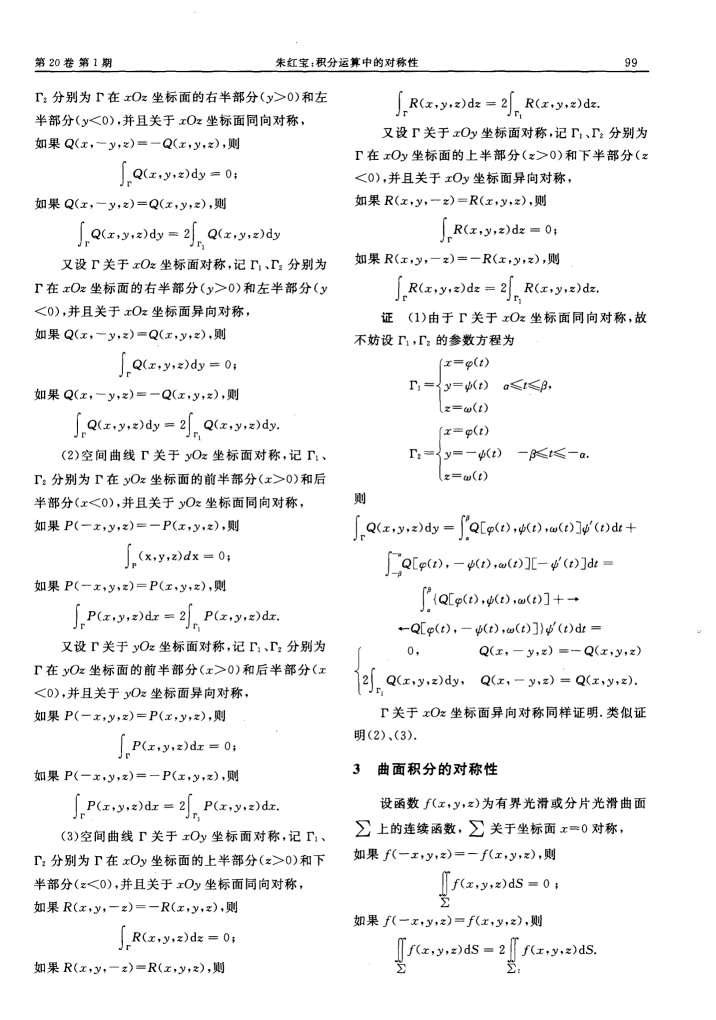 第20卷 第1期 朱红宝:积分运算中的对称性 99
Γ₂ 分别为 Γ 在 xOz 坐标面的右半部分(y>0)和左
半部分(y<0),并且关于 xOz 坐标面同向对称,
如果 Q(x,-y,z)=-Q(x,y,z),则
∫_Γ Q(x,y,z)dy = 0;
如果 Q(x,-y,z)=Q(x,y,z),则
∫_Γ Q(x,y,z)dy = 2∫_Γ₁ Q(x,y,z)dy
又设 Γ 关于 xOz 坐标面对称,记 Γ₁、Γ₂ 分别为
Γ 在 xOz 坐标面的右半部分(y>0)和左半部分(y
<0),并且关于 xOz 坐标面异向对称,
如果 Q(x,-y,z)=Q(x,y,z),则
∫_Γ Q(x,y,z)dy = 0;
如果 Q(x,-y,z)=-Q(x,y,z),则
∫_Γ Q(x,y,z)dy = 2∫_Γ₁ Q(x,y,z)dy.
(2)空间曲线 Γ 关于 yOz 坐标面对称,记 Γ₁、
Γ₂ 分别为 Γ 在 yOz 坐标面的前半部分(x>0)和后
半部分(x<0),并且关于 yOz 坐标面同向对称,
如果 P(-x,y,z)=-P(x,y,z),则
∫_P (x,y,z)dx = 0;
如果 P(-x,y,z)=P(x,y,z),则
∫_Γ P(x,y,z)dx = 2∫_Γ₁ P(x,y,z)dx.
又设 Γ 关于 yOz 坐标面对称,记 Γ₁、Γ₂ 分别为
Γ 在 yOz 坐标面的前半部分(x>0)和后半部分(x
<0),并且关于 yOz 坐标面异向对称,
如果 P(-x,y,z)=P(x,y,z),则
∫_Γ P(x,y,z)dx = 0;
如果 P(-x,y,z)=-P(x,y,z),则
∫_Γ P(x,y,z)dx = 2∫_Γ₁ P(x,y,z)dx.
(3)空间曲线 Γ 关于 xOy 坐标面对称,记 Γ₁、
Γ₂ 分别为 Γ 在 xOy 坐标面的上半部分(z>0)和下
半部分(z<0),并且关于 xOy 坐标面同向对称,
如果 R(x,y,-z)=-R(x,y,z),则
∫_Γ R(x,y,z)dz = 0;
如果 R(x,y,-z)=R(x,y,z),则
∫_Γ R(x,y,z)dz = 2∫_Γ₁ R(x,y,z)dz.
又设 Γ 关于 xOy 坐标面对称,记 Γ₁、Γ₂ 分别为
Γ 在 xOy 坐标面的上半部分(z>0)和下半部分(z
<0),并且关于 xOy 坐标面异向对称,
如果 R(x,y,-z)=R(x,y,z),则
∫_Γ R(x,y,z)dz = 0;
如果 R(x,y,-z)=-R(x,y,z),则
∫_Γ R(x,y,z)dz = 2∫_Γ₁ R(x,y,z)dz.
证 (1)由于 Γ 关于 xOz 坐标面同向对称,故
不妨设 Γ₁,Γ₂ 的参数方程为
x=φ(t)
Γ₁={ y=ψ(t) α≤t≤β,
z=ω(t)
x=φ(t)
Γ₂={ y=-ψ(t) -β≤t≤-α.
z=ω(t)
则
∫_Γ Q(x,y,z)dy = ∫_α^β Q[φ(t),ψ(t),ω(t)]ψ′(t)dt +
∫_-β^-α Q[φ(t),-ψ(t),ω(t)][-ψ′(t)]dt =
∫_α^β {Q[φ(t),ψ(t),ω(t)]+→
←Q[φ(t),-ψ(t),ω(t)]}ψ′(t)dt =
{ 0, Q(x,-y,z)=-Q(x,y,z)
2∫_Γ₁ Q(x,y,z)dy, Q(x,-y,z)=Q(x,y,z).
Γ 关于 xOz 坐标面异向对称同样证明. 类似证
明(2)、(3).
3 曲面积分的对称性
设函数 f(x,y,z)为有界光滑或分片光滑曲面
∑ 上的连续函数, ∑ 关于坐标面 x=0 对称,
如果 f(-x,y,z)=-f(x,y,z),则
∬_∑ f(x,y,z)dS = 0;
如果 f(-x,y,z)=f(x,y,z),则
∬_∑ f(x,y,z)dS = 2∬_∑₁ f(x,y,z)dS.